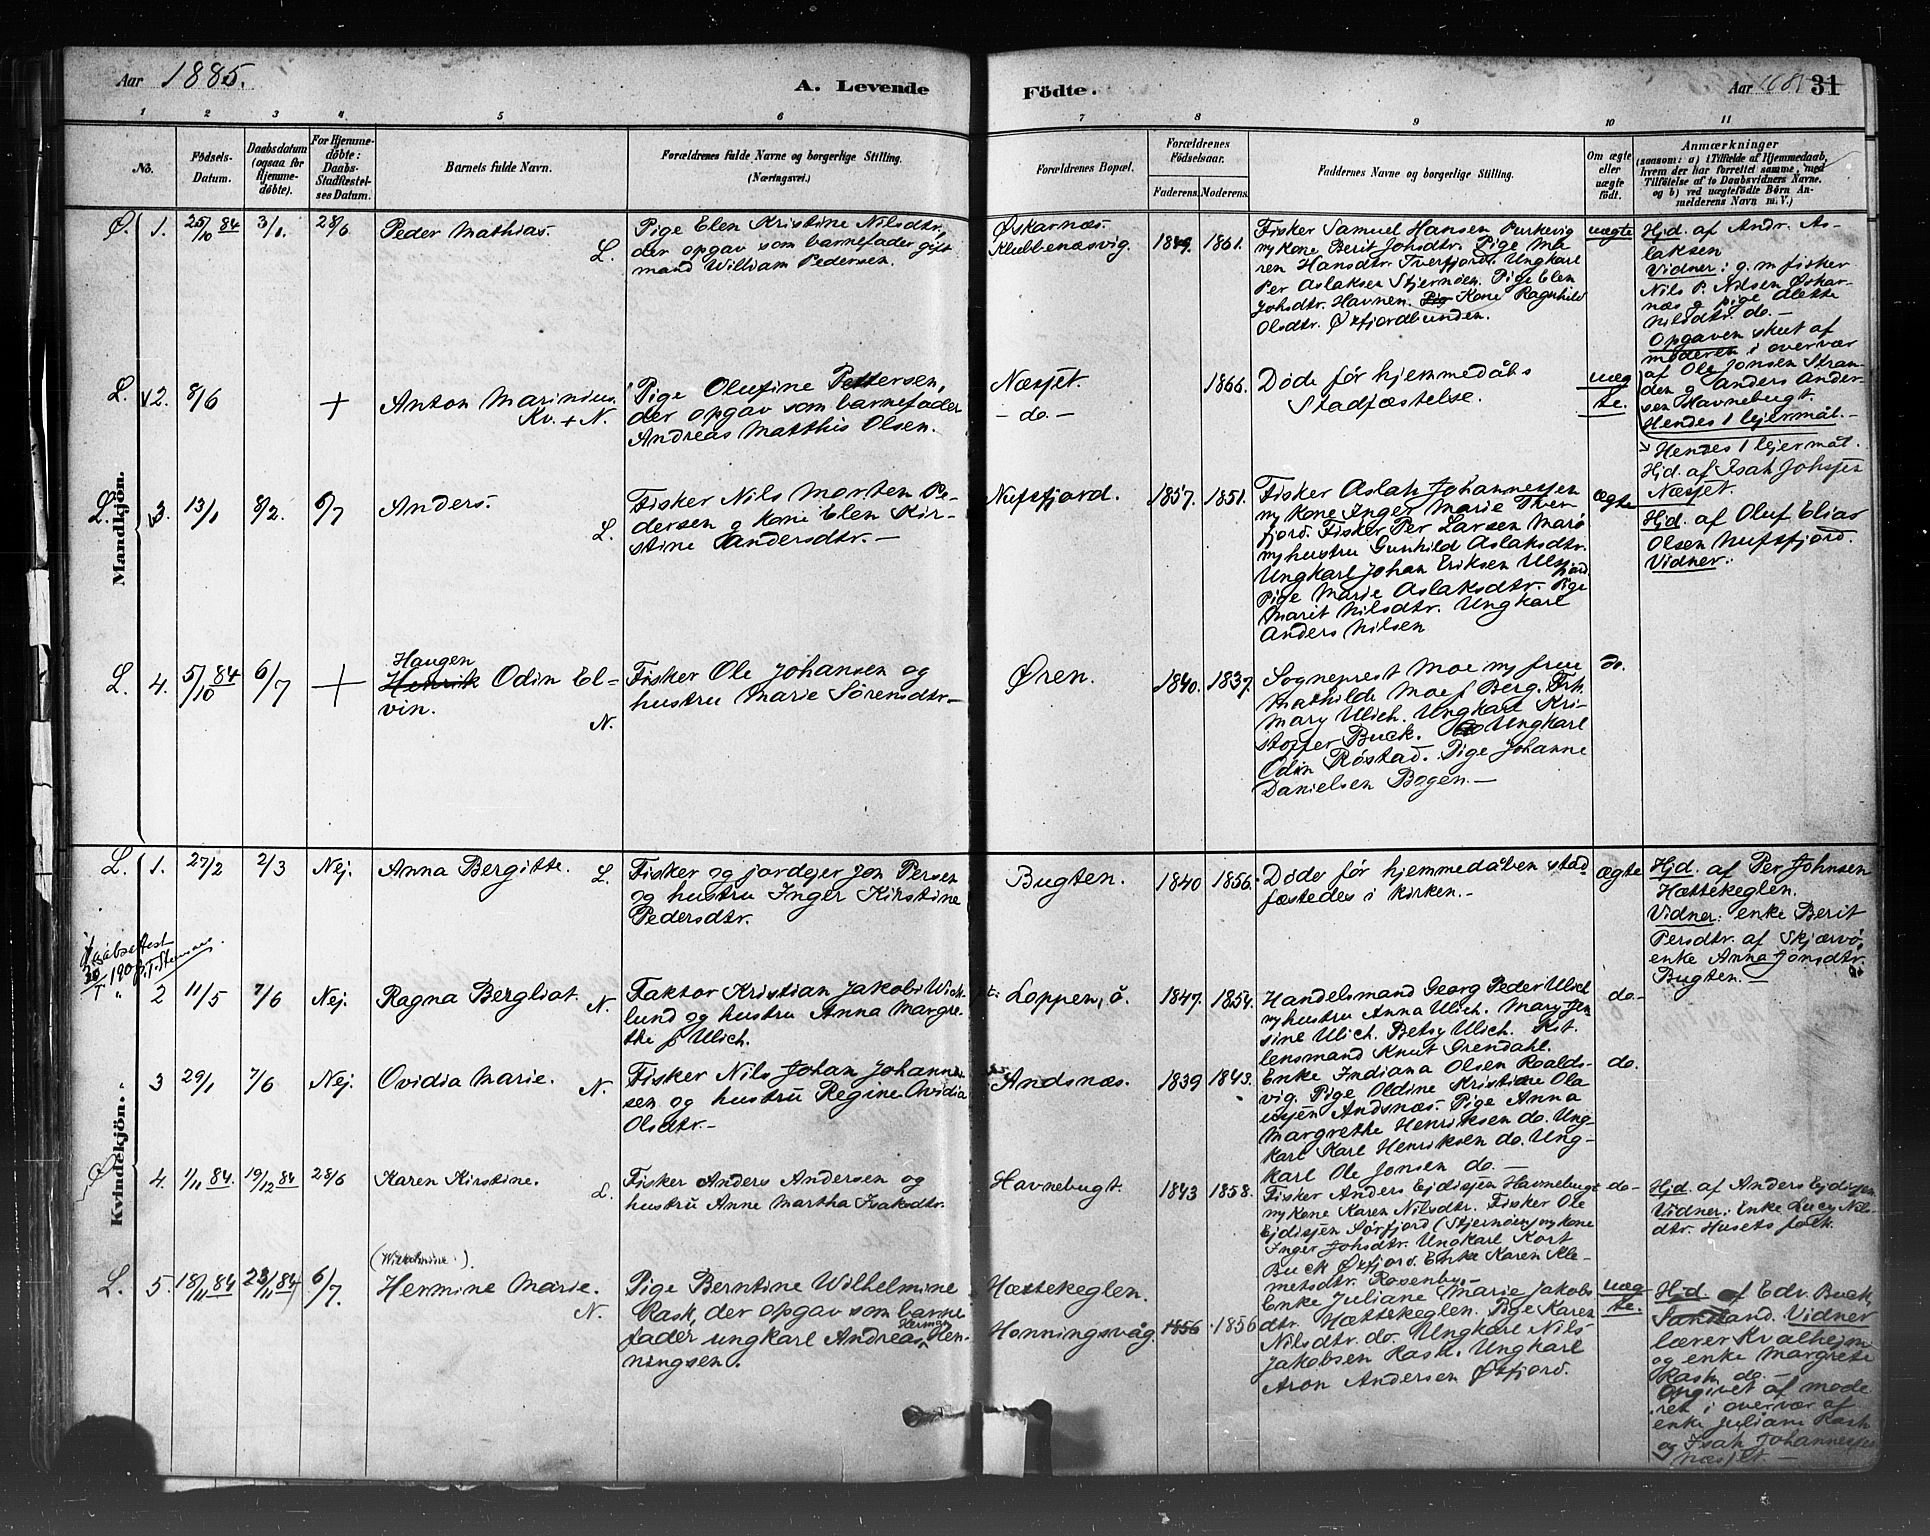 Aar 1885.
A. Levende
Födte.
Aar
31
1 2 3 4 5 6 7 8 9 10 11
No.
Födsels-Datum.
Daabsdatum (ogsaa for Hjemme-döbte).
For Hjemme-döbte: Daabs-Stadfæstel-ses Datum.
Barnets fulde Navn.
Forældrenes fulde Navne og borgerlige Stilling.
(Næringsvei.)
Forældrenes Bopæl.
Forældrenes Födselsaar.
Faderens. Moderens.
Faddernes Navne og borgerlige Stilling.
Om ægte eller uægte födt.
Anmærkninger
(saasom: a) i Tilfælde af Hjemmedaab, hvem der har forrettet samme, med Tilföielse af to Daabsvidners Navne. og b) ved uægtefödte Börn Anmelderens Navn m. V.)
Mandkjön.
Ø. 1. 25/10 84 3/1. 28/6 Peder Mathias. L.
Pige Elen Kristine Nilsdtr,
der opgav som barnefader gift
mand William Pedersen.
Øskarnæs.
Klubbenæsvig. 1849. 1861.
Fisker Samuel Hansen Purkevig
m kone Berit Johsdtr. Pige Ma
ren Hansdtr. Tverfjord. Ungkarl
Per Aslaksen Stjernöen. Pige Elen
Johsdtr. Havnen. Pig Kone Ragnhild
Olsdtr. Øxfjordbunden.
uægte
Hjd. af Andr. As-
laksen
Vidner: g.m fisker
Nils P. Nilsen Øskar-
næs g pige Alette
Nilsdtr. do. -
Opgaven skeet af
moderen i overvær
af Ole Jonsen Stran-
den g Anders Ander-
sen Havnebugt.
Hendes 1 lejermål. -
L. 2. 8/6 + Anton Marinius.
Kv. + N.
Pige Olufine Pettersen,
der opgav som barnefader
Andreas Matthis Olsen.
Næsjet.
- do - 1866.
Døde før hjemmedåbs
Stadfæstelse.
uæg
te.
Hendes 1 lejermål.
Hjd. af Isak Johsjen
Næsjet.
L. 3. 13/1 8/2. 6/7 Anders. L.
Fisker Nils Morten Pe-
dersen g kone Elen Kir-
stine Andersdtr. -
Nufsfjord. 1857. 1851.
Fisker Aslak Johannesjen
m kone Inger Marie Tver-
fjord. Fisker Per Larsen Marø
m hustru Gunhild Aslaksdtr.
Ungkarl Johan Eriksen Ulsfjord
Pige Marie Aslaksdtr. Pige
Marit Nilsdtr. Ungkarl
Anders Nilsen
ægte
Hjd. af Oluf Elias
Olsen Nufsfjord.
Vidner:
L. 4. 5/10 84 6/7 +
Haugen
Henrik Odin El-
vin. N.
Fisker Ole Johansen og
hustru Marie Sørensdtr. -
Øren. 1840. 1837.
Sogneprest Moe m frue
Mathilde Moe f Berg. Frk.
Mary Ulich. Ungkarl Kri-
stoffer Buck. Ungkarl
Odin Røstad. Pige Johanne
Danielsen Bogen. -
do.
Kvindekjön.
L. 1. 27/2 2/3 Nej. Anna Bergitte. L.
Fisker og jordejer Jon Persen
og hustru Inger Kirstine
Pedersdtr.
Bugten. 1840 1856.
Døde før hjemmedåben stad
fæstedes i kirken. -
ægte
Hjd. af Per Johnsen
Hættekeglen.
Vidner: enke Berit
Persdtr. af Skjærvø,
enke Anna Jonsdtr.
Bugten. -
Daabsattest
" 2 11/5 7/6 Nej. Ragna Bergliot. N.
Faktor Kristian Jakobi Wick-
lund og hustru Anna Margre-
the f Ulich.
Loppen, ö. 1847. 1854.
Handelsmand Georg Peder Ulich
m hustru Anna Ulich. Mary Jen
sine Ulich. Betsy Ulich. Kst.
lensmand Knut Grendahl.
do-
" 3 29/1 7/6 Nej. Ovidia Marie. N.
Fisker Nils Johan Johanne-
sen og hustru Regine Ovidia
Olsdtr. -
Andsnæs. 1839 1843.
Enke Indiana Olsen Roalds-
vig. Pige Oldine Kristine Ola
ussjen Andsnæs. Pige Anna
Margrethe Henriksen do. Ung-
karl Karl Henriksen do. Ung-
karl Ole Jonsen do. -
do.
Ø 4. 1/11 84. 19/12 84 28/6 Karen Kirstine. L.
Fisker Anders Andersen og
hustru Anne Martha Isaksdtr.
Havnebugt. 1843 1858.
Fisker Anders Ejdisjen Havnebugt
m kone Karen Nilsdtr. Fisker Ole
Ejdisjen Sørfjord (Stjernöen) m kone
Inger Johsdtr. Ungkarl Kort
Buck Øxfjord. Enke Karen Kle-
metsdtr. Rosenby. -
do-
Hjd. af Anders Ejdisjen
Vidner: Enke Lucy Nils-
dtr. Husets folk.
L. 5. 18/11 84 23/11 84 6/7.
(Wilhelmine.)
Hermine Marie. N.
Pige Berntine Wilhelmine
Rask, der opgav som barne
fader ungkarl Andreas Herman Hen-
ningsen.
Hættekeglen.
Honningsvåg. 1856 1856
Enke Juliane Marie Jakobs
dtr. Hættekeglen. Pige Karen
Nilsdtr. do. Ungkarl Nils
Jakobsen Rask. Ungkarl
Aron Andersen Øxfjord.
uæg
te.
Hjd. af Edv. Buck,
Sandland. Vidner
lærer Kvalhejm
og enke Margrete
Rask do. -
Opgivet af mode
ren i overvær af
enke Juliane Rask
og Isak Johannesjen
Næsjet. -